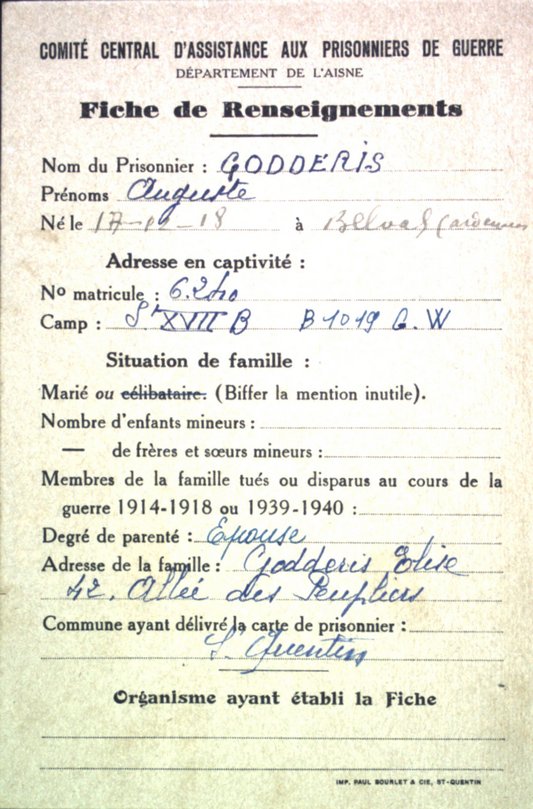 COMITÉ CENTRAL D'ASSISTANCE AUX PRISONNIERS DE GUERRE
DÉPARTEMENT DE L'AISNE
Fiche de Renseignements
Nom du Prisonnier : GODDERIS
Prénoms Auguste
Né le 17-12-18 à Belval (Ardennes
Adresse en captivité :
No matricule : 6.240
Camp : St XVII B B 1019 G. W
Situation de famille :
Marié ou célibataire. (Biffer la mention inutile).
Nombre d'enfants mineurs :
— de frères et sœurs mineurs :
Membres de la famille tués ou disparus au cours de la
guerre 1914-1918 ou 1939-1940 :
Degré de parenté : Epouse
Adresse de la famille : Godderis Elise
42, Allée des Peupliers
Commune ayant délivré la carte de prisonnier :
St Quentin
Organisme ayant établi la Fiche
IMP. PAUL BOURLET & CIE, ST-QUENTIN